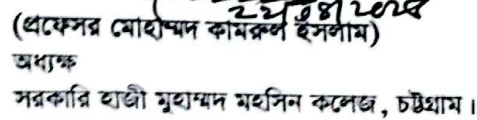 22/08/2024
(প্রফেসর মোহাম্মদ কামরুল ইসলাম)
অধ্যক্ষ
সরকারি হাজী মুহাম্মদ মহসিন কলেজ, চট্টগ্রাম।